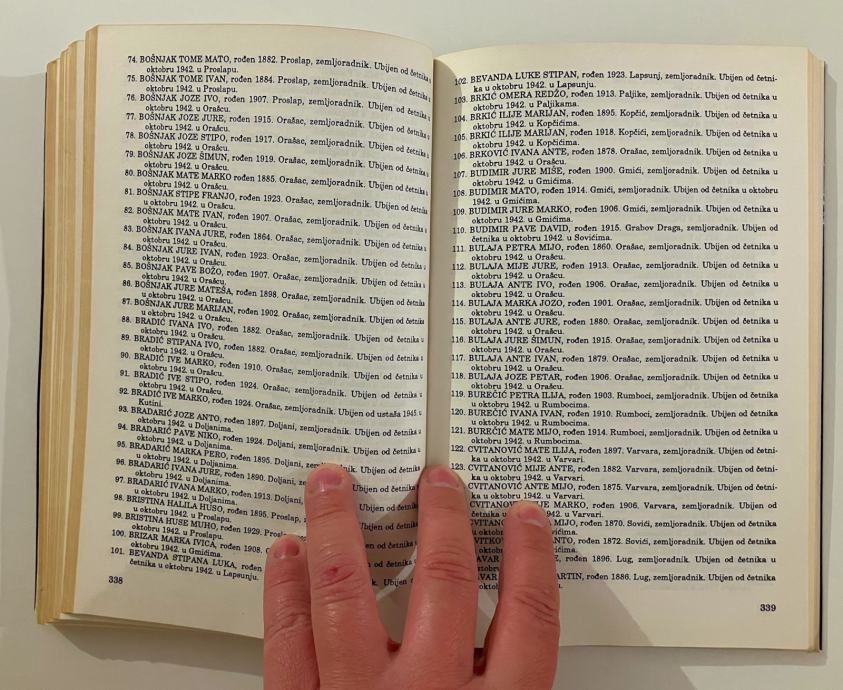 74. BOŠNJAK TOME MATO, rođen 1882. Proslap, zemljoradnik. Ubijen od četnika u
oktobru 1942. u Proslapu.
75. BOŠNJAK TOME IVAN, rođen 1884. Proslap, zemljoradnik. Ubijen od četnika
oktobru 1942. u Proslapu.
76. BOŠNJAK JOZE IVO, rođen 1907. Proslap, zemljoradnik. Ubijen od četnika u
oktobru 1942. u Orašcu.
77. BOŠNJAK JOZE JURE, rođen 1915. Orašac, zemljoradnik. Ubijen od četnika u
oktobru 1942. u Orašcu.
78. BOŠNJAK JOZE STIPO, rođen 1917. Orašac, zemljoradnik. Ubijen od četnika u
oktobru 1942. u Orašcu.
79. BOŠNJAK JOZE ŠIMUN, rođen 1919. Orašac, zemljoradnik. Ubijen od četnika u
oktobru 1942. u Orašcu.
80. BOŠNJAK MATE MARKO rođen 1885. Orašac, zemljoradnik. Ubijen od četnika u
oktobru 1942. u Orašcu.
81. BOŠNJAK STIPE FRANJO, rođen 1923. Orašac, zemljoradnik. Ubijen od četnika
u oktobru 1942. u Orašcu.
82. BOŠNJAK MATE IVAN, rođen 1907. Orašac, zemljoradnik. Ubijen od četnika u
oktobru 1942. u Orašcu.
83. BOŠNJAK IVANA JURE, rođen 1864. Orašac, zemljoradnik. Ubijen od četnika u
oktobru 1942. u Orašcu.
84. BOŠNJAK JURE IVAN, rođen 1923. Orašac, zemljoradnik. Ubijen od četnika u
oktobru 1942. u Orašcu.
85. BOŠNJAK PAVE BOŽO, rođen 1907. Orašac, zemljoradnik. Ubijen od četnika u
oktobru 1942. u Orašcu,
86. BOŠNJAK JURE MATEŠA, rođen 1898. Orašac, zemljoradnik. Ubijen od četnika
u oktobru 1942. u Orašcu.
87. BOŠNJAK JURE MARIJAN, rođen 1902. Orašac, zemljoradnik. Ubijen od četnika
u oktobru 1942. u Orašcu.
88. BRADIĆ IVANA IVO, rođen 1882. Orašac, zemljoradnik. Ubijen od četnika u
oktobru 1942. u Orašcu.
89. BRADIĆ STIPANA IVO, rođen 1882. Orašac, zemljoradnik. Ubijen od četnika u
oktobru 1942. u Orašcu.
90. BRADIĆ IVE MARKO, rođen 1910. Orašac, zemljoradnik. Ubijen od četnika u
oktobru 1942. u Orašcu.
91. BRADIĆ IVE STIPO, rođen 1924. Orašac, zemljoradnik. Ubijen od četnika u
oktobru 1942. u Orašcu.
92. BRADIĆ IVE MARKO, rođen 1924. Orašac, zemljoradnik. Ubijen od ustaša 1945. u
Kutini.
93. BRADARIĆ JOZE ANTO, rođen 1897. Doljani, zemljoradnik. Ubijen od četnika u
oktobru 1942. u Doljanima.
94. BRADARIĆ PAVE NIKO, rođen 1924. Doljani, zemljoradnik. Ubijen od četnika u
oktobru 1942. u Doljanima.
95. BRADARIĆ MARKA PERO, rođen 1895. Doljani, zemljoradnik. Ubijen od četnika
u oktobru 1942. u Doljanima.
96. BRADARIĆ IVANA JURE, rođen 1890. Doljani, Ubijen od četnika
u oktobru 1942. u Doljanima.
97. BRADARIĆ IVANA MARKO, rođen 1913. Doljani, od četnika
u oktobru 1942. u Doljanima.
98. BRISTINA HALILA HUSO, rođen 1895. Proslap, od četnika
u oktobru 1942. u Proslapu.
99. BRISTINA HUSE MUHO, rođen 1929. od četnika
u oktobru 1942. u Proslapu.
100. BRIZAR MARKA IVICA, rođen 1908. od četnika
u oktobru 1942. u Gmićima.
101. BEVANDA STIPANA LUKA, rođen Ubijen od
četnika u oktobru 1942. u Lapsunju.
338
102. BEVANDA LUKE STIPAN, rođen 1923. Lapsunj, zemljoradnik. Ubijen od četni-
ka u oktobru 1942. u Lapsunju.
103. BRKIĆ OMERA REDŽO, rođen 1913. Paljike, zemljoradnik. Ubijen od četnika u
oktobru 1942. u Paljikama.
104. BRKIĆ ILIJE MARIJAN, rođen 1895. Kopčić, zemljoradnik. Ubijen od četnika u
oktobru 1942. u Kopčićima.
105. BRKIĆ ILIJE MARIJAN, rođen 1918. Kopčići, zemljoradnik. Ubijen od četnika u
oktobru 1942. u Kopčićima.
106. BRKOVIĆ IVANA ANTE, rođen 1878. Orašac, zemljoradnik. Ubijen od četnika u
oktobru 1942. u Orašcu.
107. BUDIMIR JURE MIŠE, rođen 1900. Gmići, zemljoradnik. Ubijen od četnika u
oktobru 1942. u Gmićima.
108. BUDIMIR MATO, rođen 1914. Gmići, zemljoradnik. Ubijen od četnika u oktobru
1942. u Gmićima.
109. BUDIMIR JURE MARKO, rođen 1906. Gmići, zemljoradnik. Ubijen od četnika u
oktobru 1942. u Gmićima.
110. BUDIMIR PAVE DAVID, rođen 1915. Grabov Draga, zemljoradnik. Ubijen od
četnika u oktobru 1942. u Sovićima.
111. BULAJA PETRA MIJO, rođen 1860. Orašac, zemljoradnik. Ubijen od četnika u
oktobru 1942. u Orašcu.
112. BULAJA MIJE JURE, rođen 1913. Orašac, zemljoradnik. Ubijen od četnika u
oktobru 1942. u Orašcu.
113. BULAJA ANTE IVO, rođen 1906. Orašac, zemljoradnik. Ubijen od četnika u
oktobru 1942. u Orašcu.
114. BULAJA MARKA JOZO, rođen 1901. Orašac, zemljoradnik. Ubijen od četnika u
oktobru 1942. u Orašcu.
115. BULAJA ANTE JURE, rođen 1880. Orašac, zemljoradnik. Ubijen od četnika u
oktobru 1942. u Orašcu.
116. BULAJA JURE ŠIMUN, rođen 1915. Orašac, zemljoradnik. Ubijen od četnika u
oktobru 1942. u Orašcu.
117. BULAJA ANTE IVAN, rođen 1879. Orašac, zemljoradnik. Ubijen od četnika u
oktobru 1942. u Orašcu.
118. BULAJA JOZE PETAR, rođen 1906. Orašac, zemljoradnik. Ubijen od četnika u
oktobru 1942. u Orašcu.
119. BUREČIĆ PETRA ILIJA, rođen 1903. Rumboci, zemljoradnik. Ubijen od četnika
u oktobru 1942. u Rumbocima.
120. BUREČIĆ IVANA IVAN, rođen 1910. Rumboci, zemljoradnik. Ubijen od četnika
u oktobru 1942. u Rumbocima.
121. BUREČIĆ MATE MIJO, rođen 1914. Rumboci, zemljoradnik. Ubijen od četnika
u oktobru 1942. u Rumbocima.
122. CVITANOVIĆ MATE ILIJA, rođen 1897. Varvara, zemljoradnik. Ubijen od četni-
ka u oktobru 1942. u Varvari.
123. CVITANOVIĆ MIJE ANTE, rođen 1882. Varvara, zemljoradnik. Ubijen od četni-
ka u oktobru 1942. u Varvari.
CVITANOVIĆ ANTE MIJO, rođen 1875. Varvara, zemljoradnik. Ubijen od četni-
ka u oktobru 1942. u Varvari.
MARKO, rođen 1906. Varvara, zemljoradnik. Ubijen od
četnika u 1942. u Varvari.
MIJO, rođen 1870. Sovići, zemljoradnik. Ubijen od četnika
rođen 1872. Sovići, zemljoradnik. Ubijen od četnika
rođen 1896. Lug, zemljoradnik. Ubijen od četnika u
rođen 1886. Lug, zemljoradnik. Ubijen od četnika
339